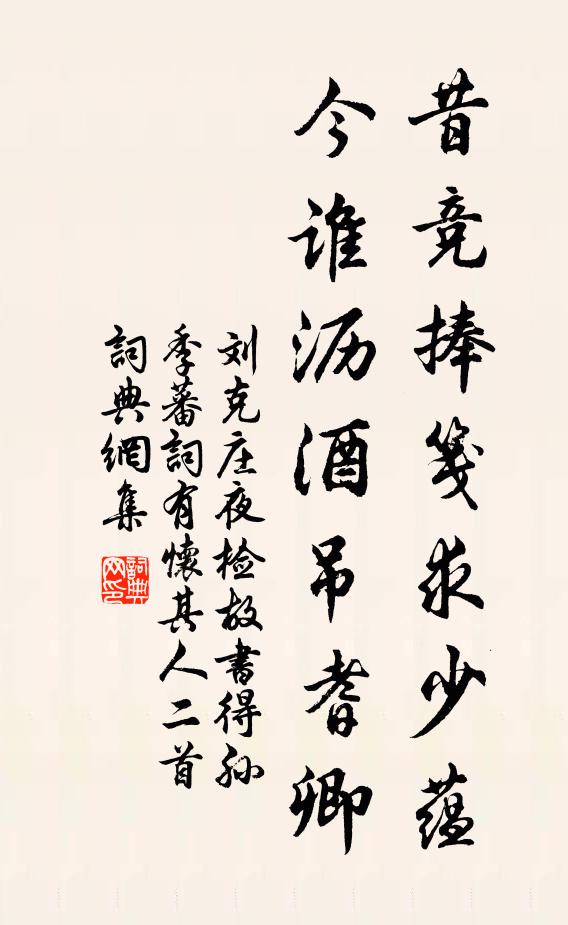 昔竞捧笺求少蕴
今谁沥酒吊耆卿
刘克庄夜检故书得孙
季蕃詞有懷其人二首
詞典網集
詞典网印